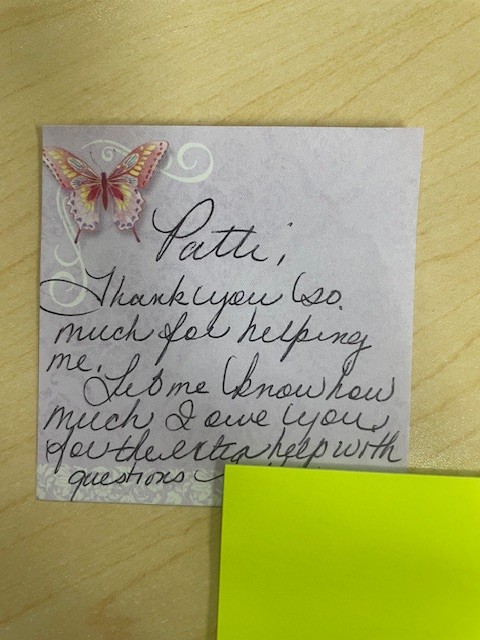 Patti,
Thank you so
much for helping
me.
Let me know how
much I owe you
for the extra help with
questions